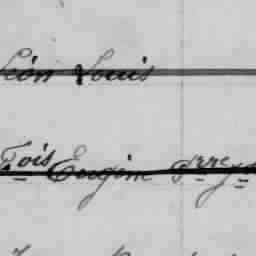 Léon Louis
Fois Eugène